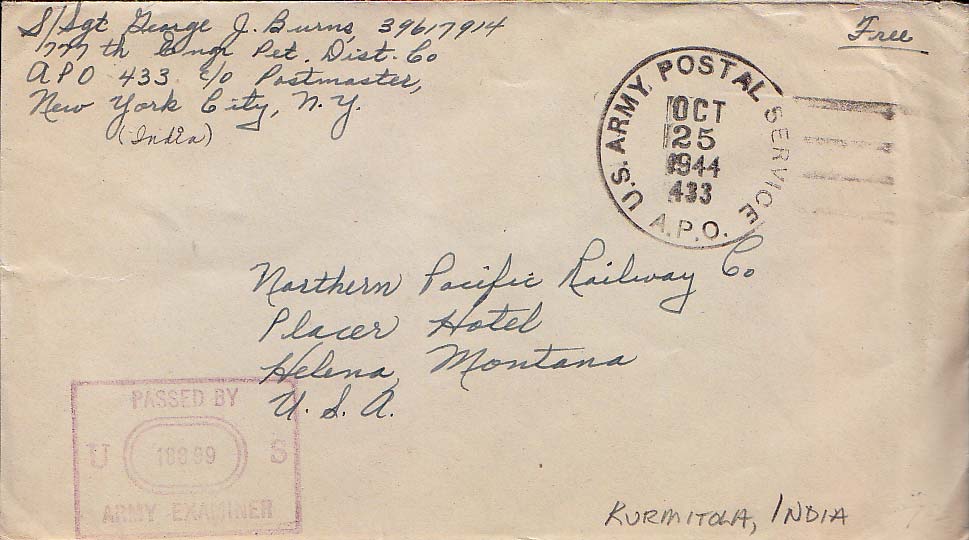 S/Sgt George J. Burns 39617914
777th Engr Pet. Dist. Co
APO 433 c/o Postmaster,
New York City, N.Y.
(India)
Free
U.S. ARMY POSTAL SERVICE
OCT
25
1944
433
A.P.O.
Northern Pacific Railway Co
Placer Hotel
Helena, Montana
U.S.A.
PASSED BY
U S
ARMY EXAMINER
KURMITOLA, INDIA